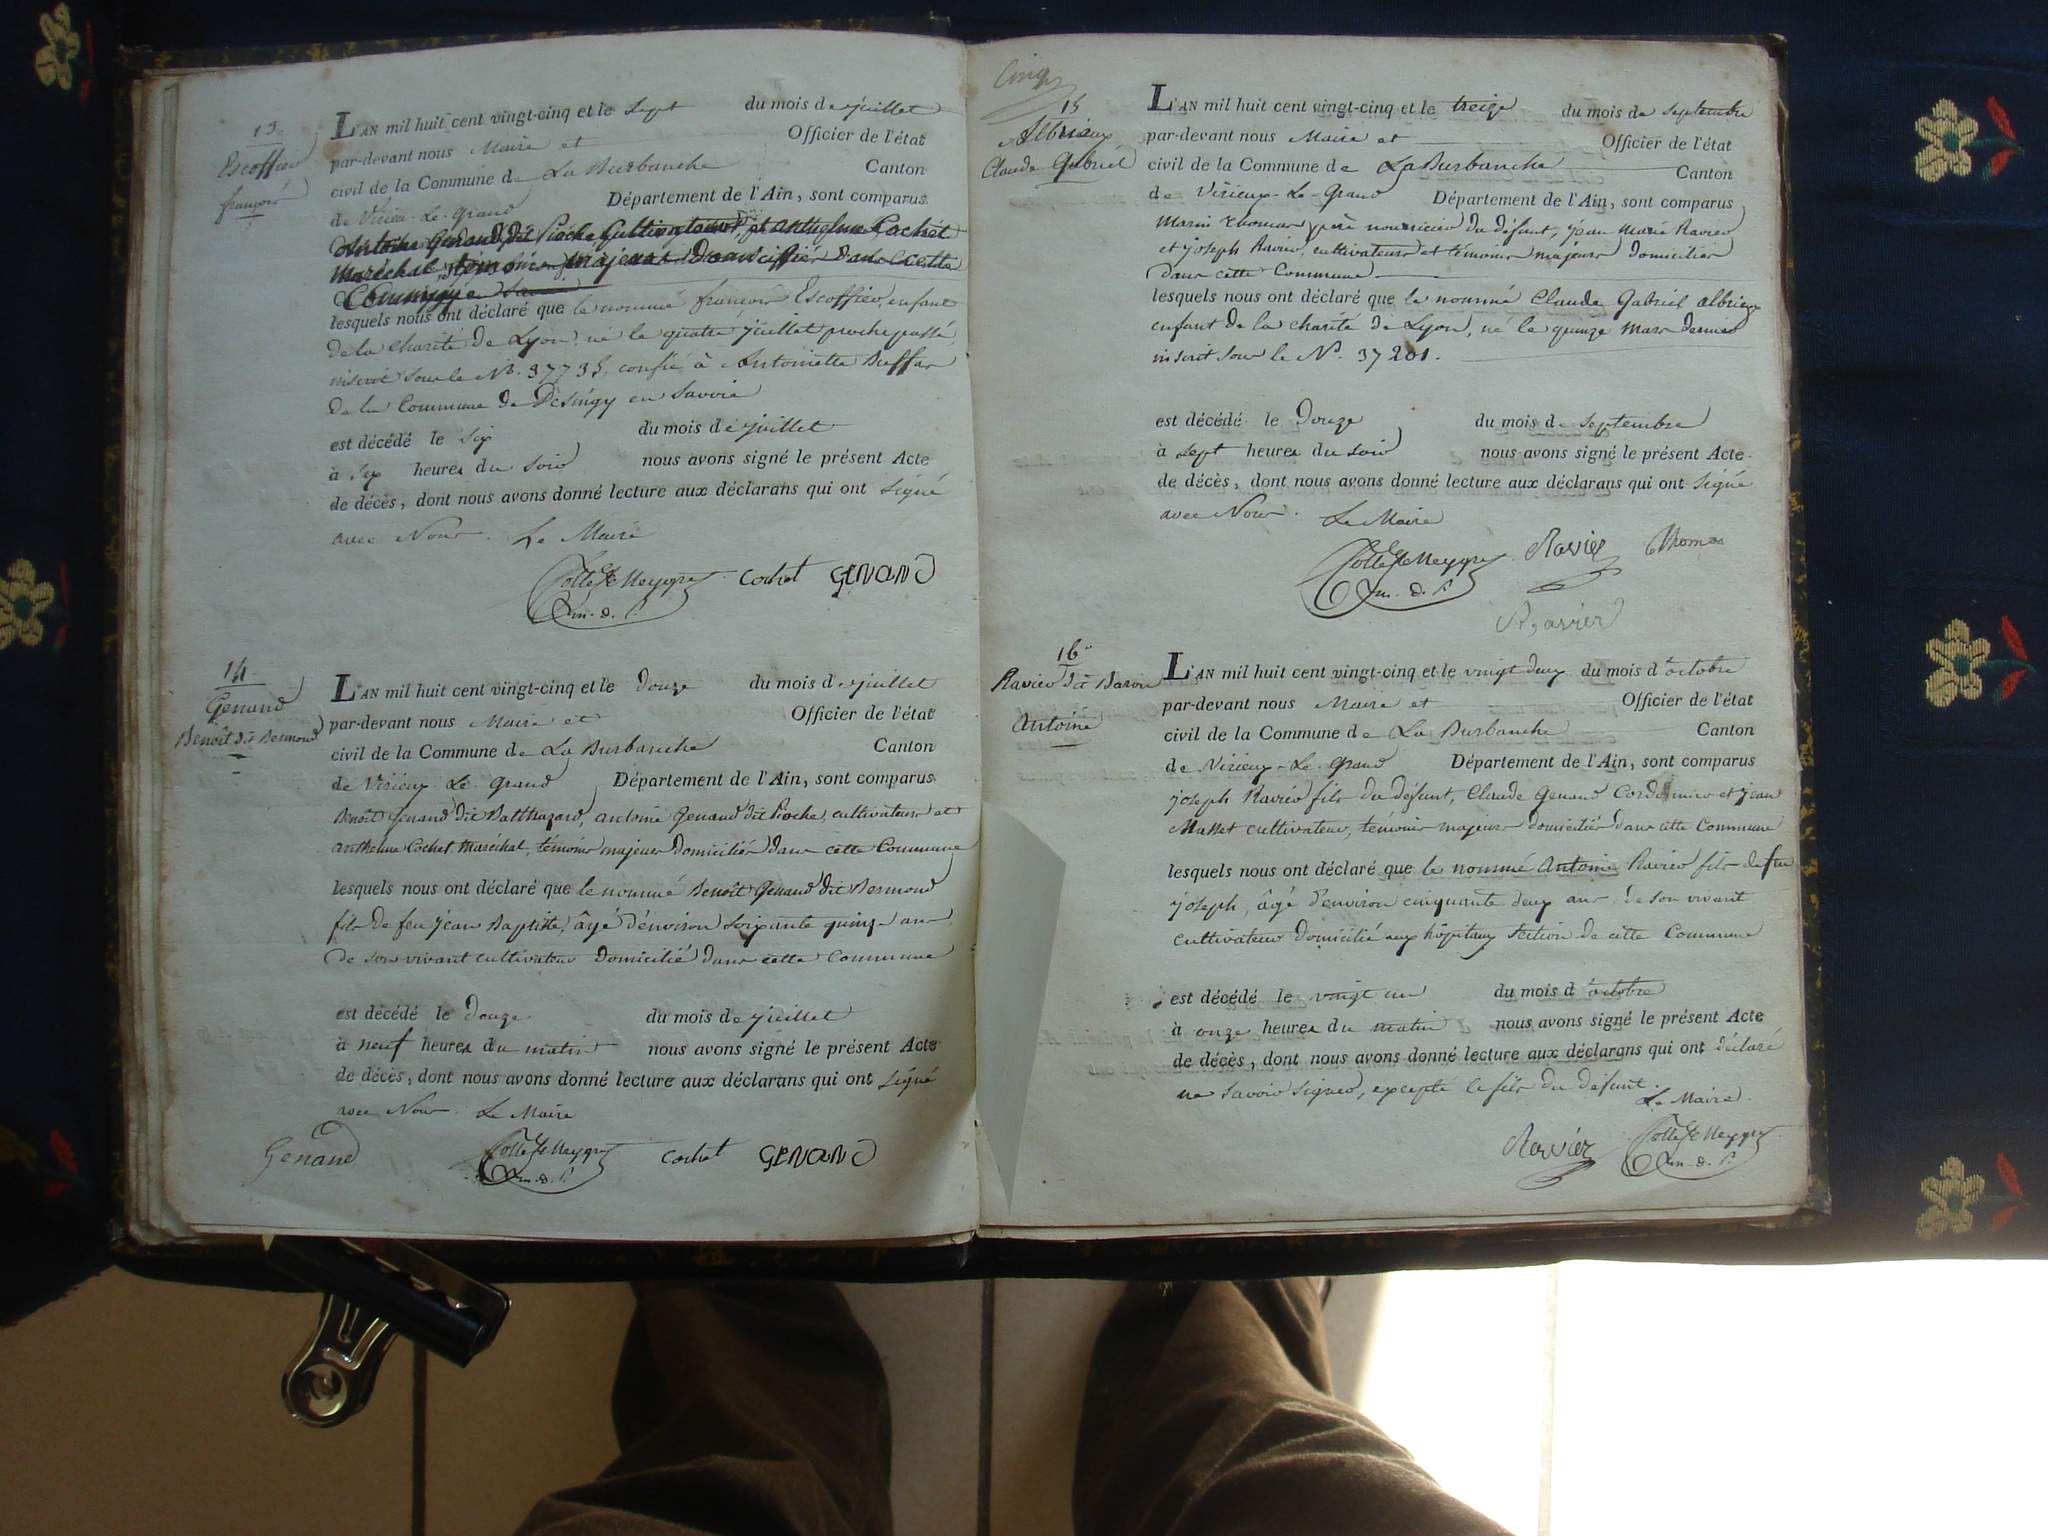 13.
Escoffier
françois
L'AN mil huit cent vingt-cinq et le sept du mois de juillet
par-devant nous Maire et Officier de l'état
civil de la Commune de La Burbanche Canton
de Virieu-Le-Grand Département de l'Ain, sont comparus
Antoine Genand, dit Pioche Cultivateur, et anthelme Cochet
Maréchal témoins majeurs Domiciliés Dans cette
Commune
lesquels nous ont déclaré que le nommé françois Escoffier, enfant
de la charité de Lyon né le quatre juillet proche passé,
inscrit sous le No. 37735, confié à Antoinette Buffar
de la Commune de Désingy en Savoie
est décédé le six du mois de juillet
à six heures du soir nous avons signé le présent Acte
de décès, dont nous avons donné lecture aux déclarans qui ont signé
avec Nous. Le Maire
Cochet GENAND
14.
Genand
Benoît dit Bermond
L'AN mil huit cent vingt-cinq et le douze du mois de juillet
par-devant nous Maire et Officier de l'état
civil de la Commune de La Burbanche Canton
de Virieux-Le-Grand Département de l'Ain, sont comparus
Benoît Genand dit Balthazard, antoine Genand dit Pioche, cultivateurs et
anthelme Cochet Maréchal, témoins majeurs Domiciliés dans cette Commune
lesquels nous ont déclaré que le nommé Benoît Genand dit Bermond
fils de feu jean Baptiste, âgé d'environ soixante quinze ans
de son vivant cultivateur Domicilié dans cette Commune
est décédé le douze du mois de juillet
à neuf heures du matin nous avons signé le présent Acte
de décès, dont nous avons donné lecture aux déclarans qui ont signé
avec Nous. Le Maire
Genand Cochet GENAND
Cinq
15
Albrieux
Claude Gabriel
L'AN mil huit cent vingt-cinq et le treize du mois de septembre
par-devant nous Maire et Officier de l'état
civil de la Commune de La Burbanche Canton
de Virieux-Le-Grand Département de l'Ain, sont comparus
Marin Thomas père nourricier du défunt, jean Marie Ravier
et joseph Ravier, cultivateurs et témoins majeurs domiciliés
dans cette Commune
lesquels nous ont déclaré que le nommé Claude Gabriel albrieux
enfant de la charité de Lyon, né le quinze mars dernier
inscrit sous le No. 37201.
est décédé le Douze du mois de septembre
à sept heures du soir nous avons signé le présent Acte
de décès, dont nous avons donné lecture aux déclarans qui ont signé
avec Nous. Le Maire
Ravier Thomas
Ravier
16
Ravier dit Baron
Antoine
L'AN mil huit cent vingt-cinq et le vingt deux du mois d'octobre
par-devant nous Maire et Officier de l'état
civil de la Commune de La Burbanche Canton
de Virieux-Le-Grand Département de l'Ain, sont comparus
joseph Ravier fils du défunt, Claude Genand Cordonnier et jean
Masset cultivateur, témoins majeurs domiciliés dans cette Commune
lesquels nous ont déclaré que le nommé Antoine Ravier fils de feu
joseph, âgé d'environ cinquante deux ans, de son vivant
cultivateur domicilié aux hôpitaux section de cette Commune
est décédé le vingt un du mois d'octobre
à onze heures du matin nous avons signé le présent Acte
de décès, dont nous avons donné lecture aux déclarans qui ont déclaré
ne savoir signer, excepté le fils du défunt.
Le Maire
Ravier